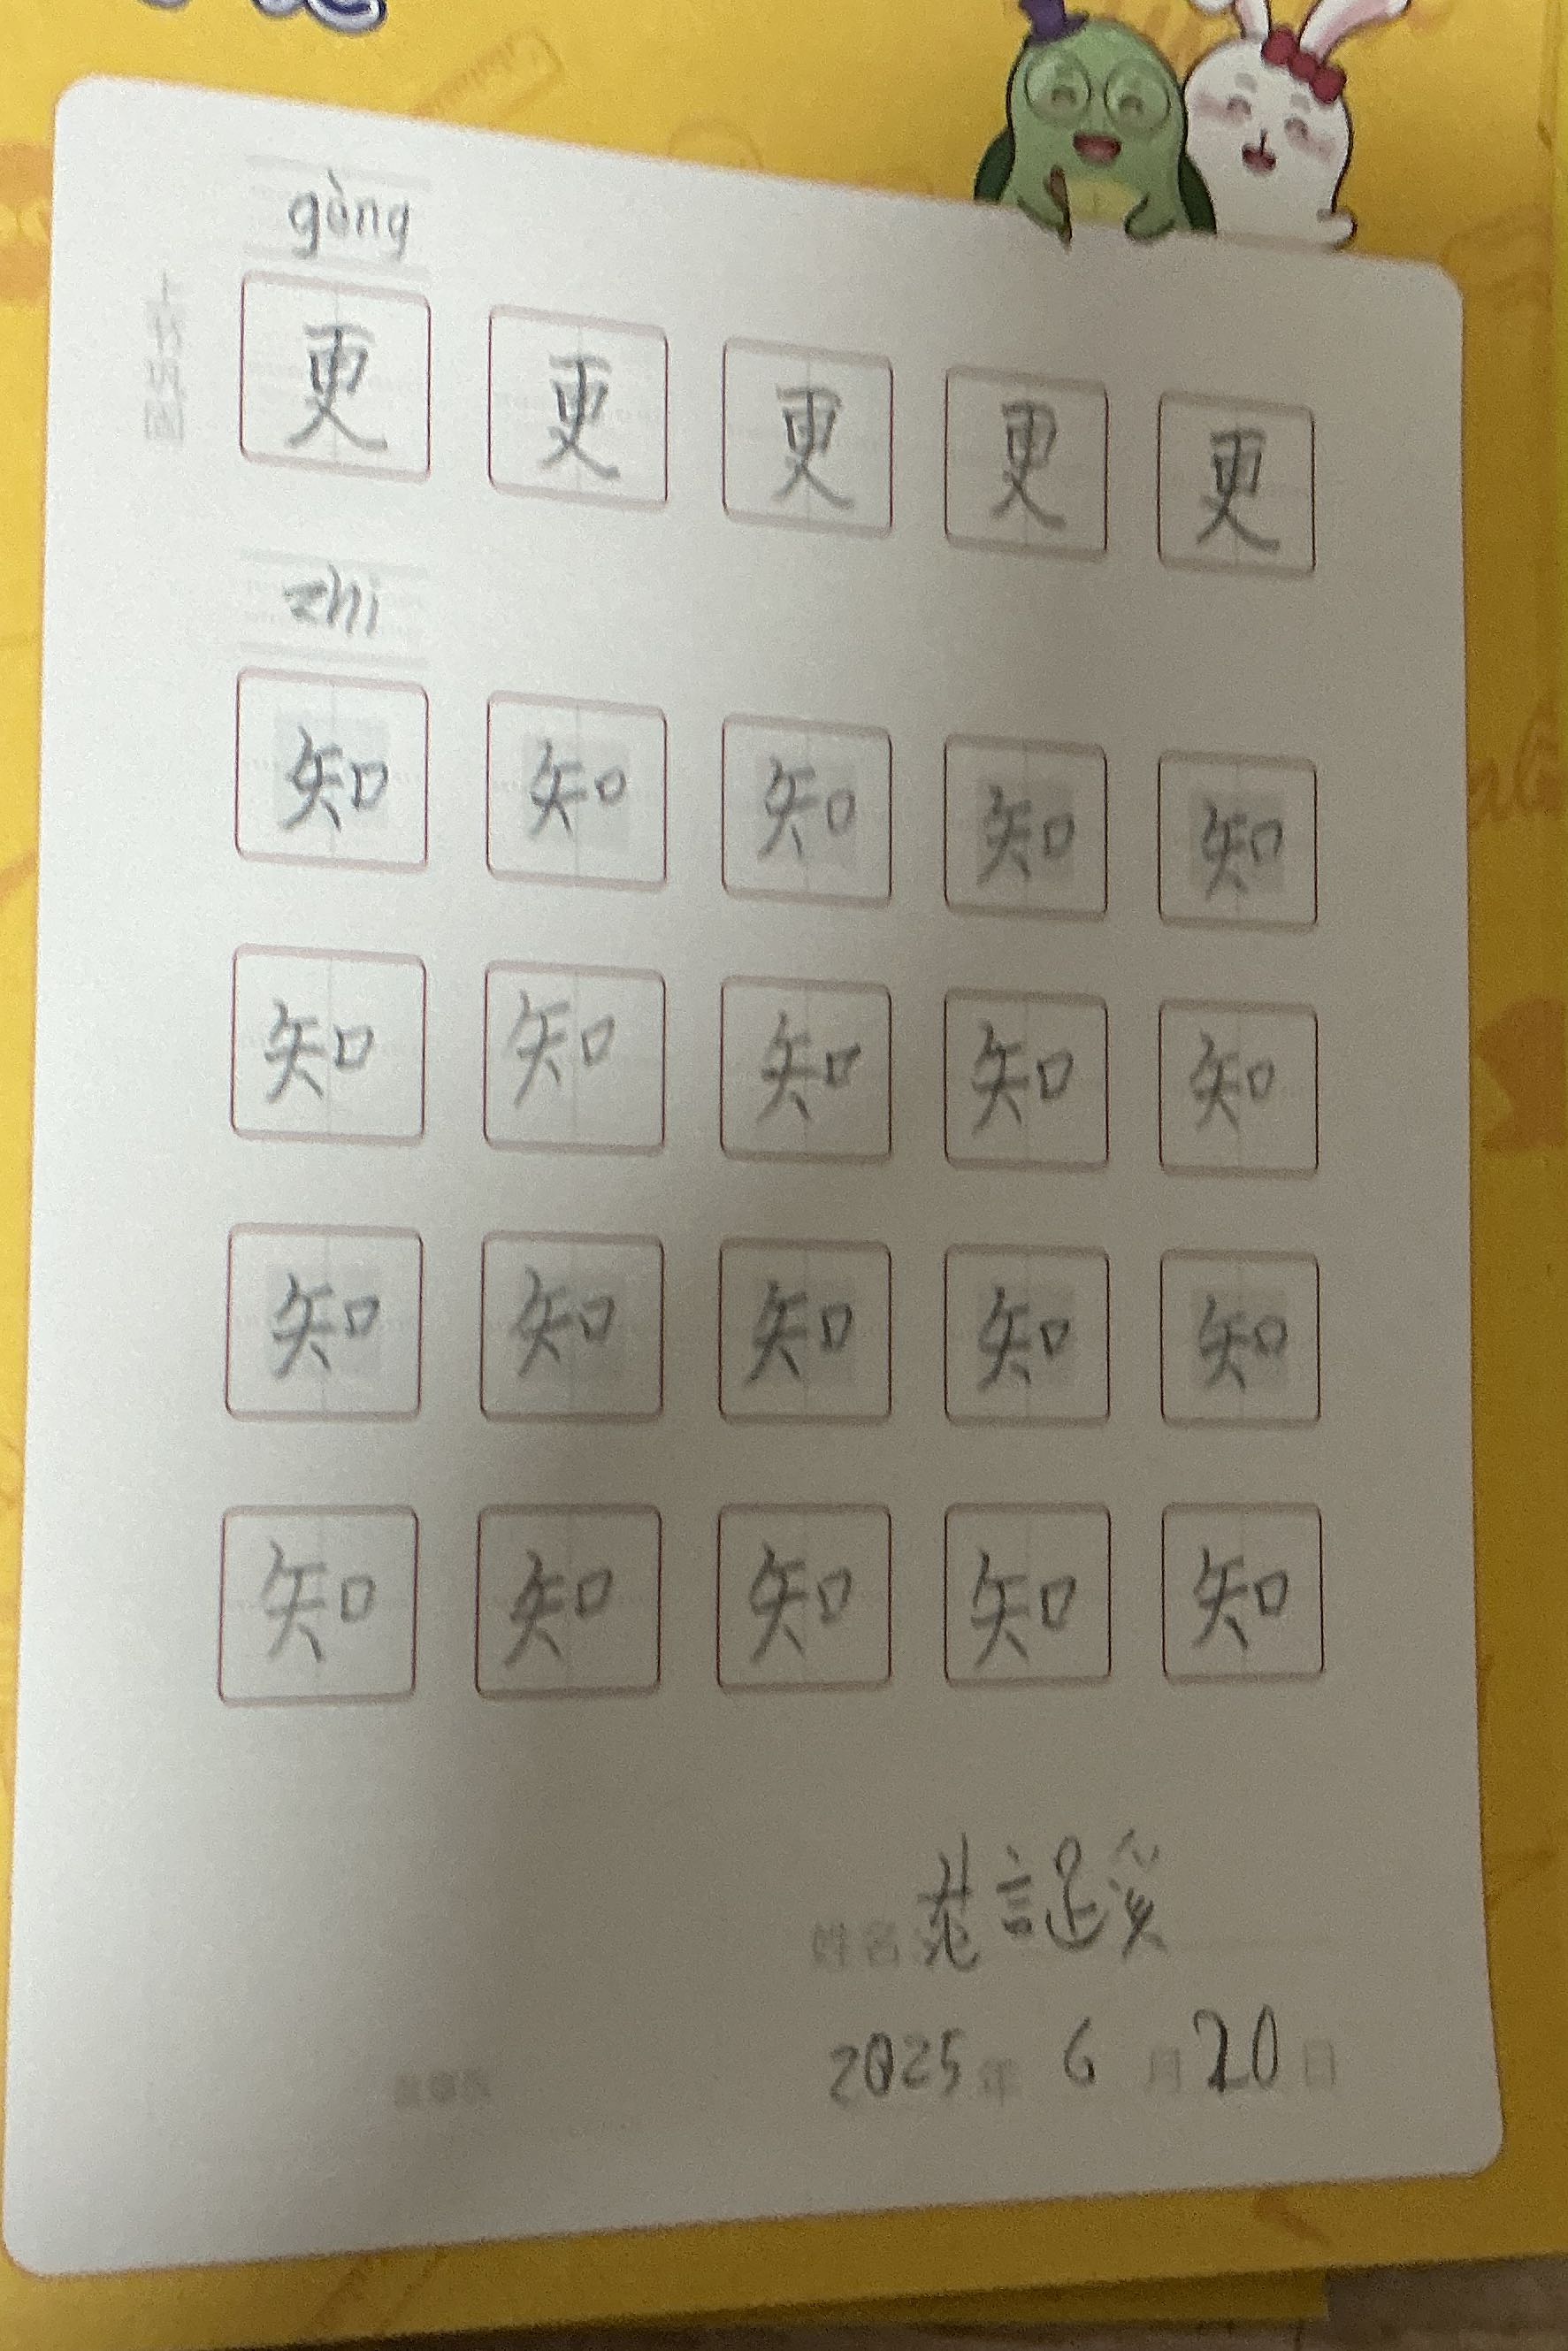 gèng
更 更 更 更 更
zhi
知 知 知 知 知
知 知 知 知 知
知 知 知 知 知
知 知 知 知 知
姓名
2025 年 6 月 20 日